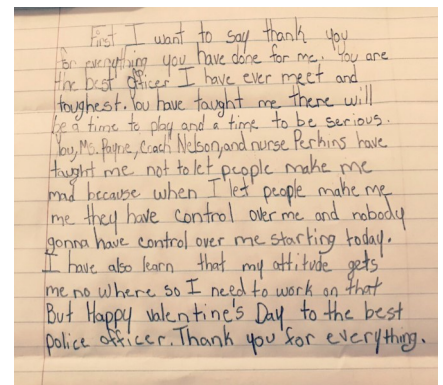 First I want to say thank you
for everything you have done for me. You are
the best officer I have ever meet and
toughest. You have taught me there will
be a time to play and a time to be serious.
You, Ms. Payne, Coach Nelson, and nurse Perkins have
taught me not to let people make me
mad because when I let people make me
me they have control over me and nobody
gonna have control over me starting today.
I have also learn that my attitude gets
me no where so I need to work on that
But Happy valentine's Day to the best
police officer. Thank you for everything.